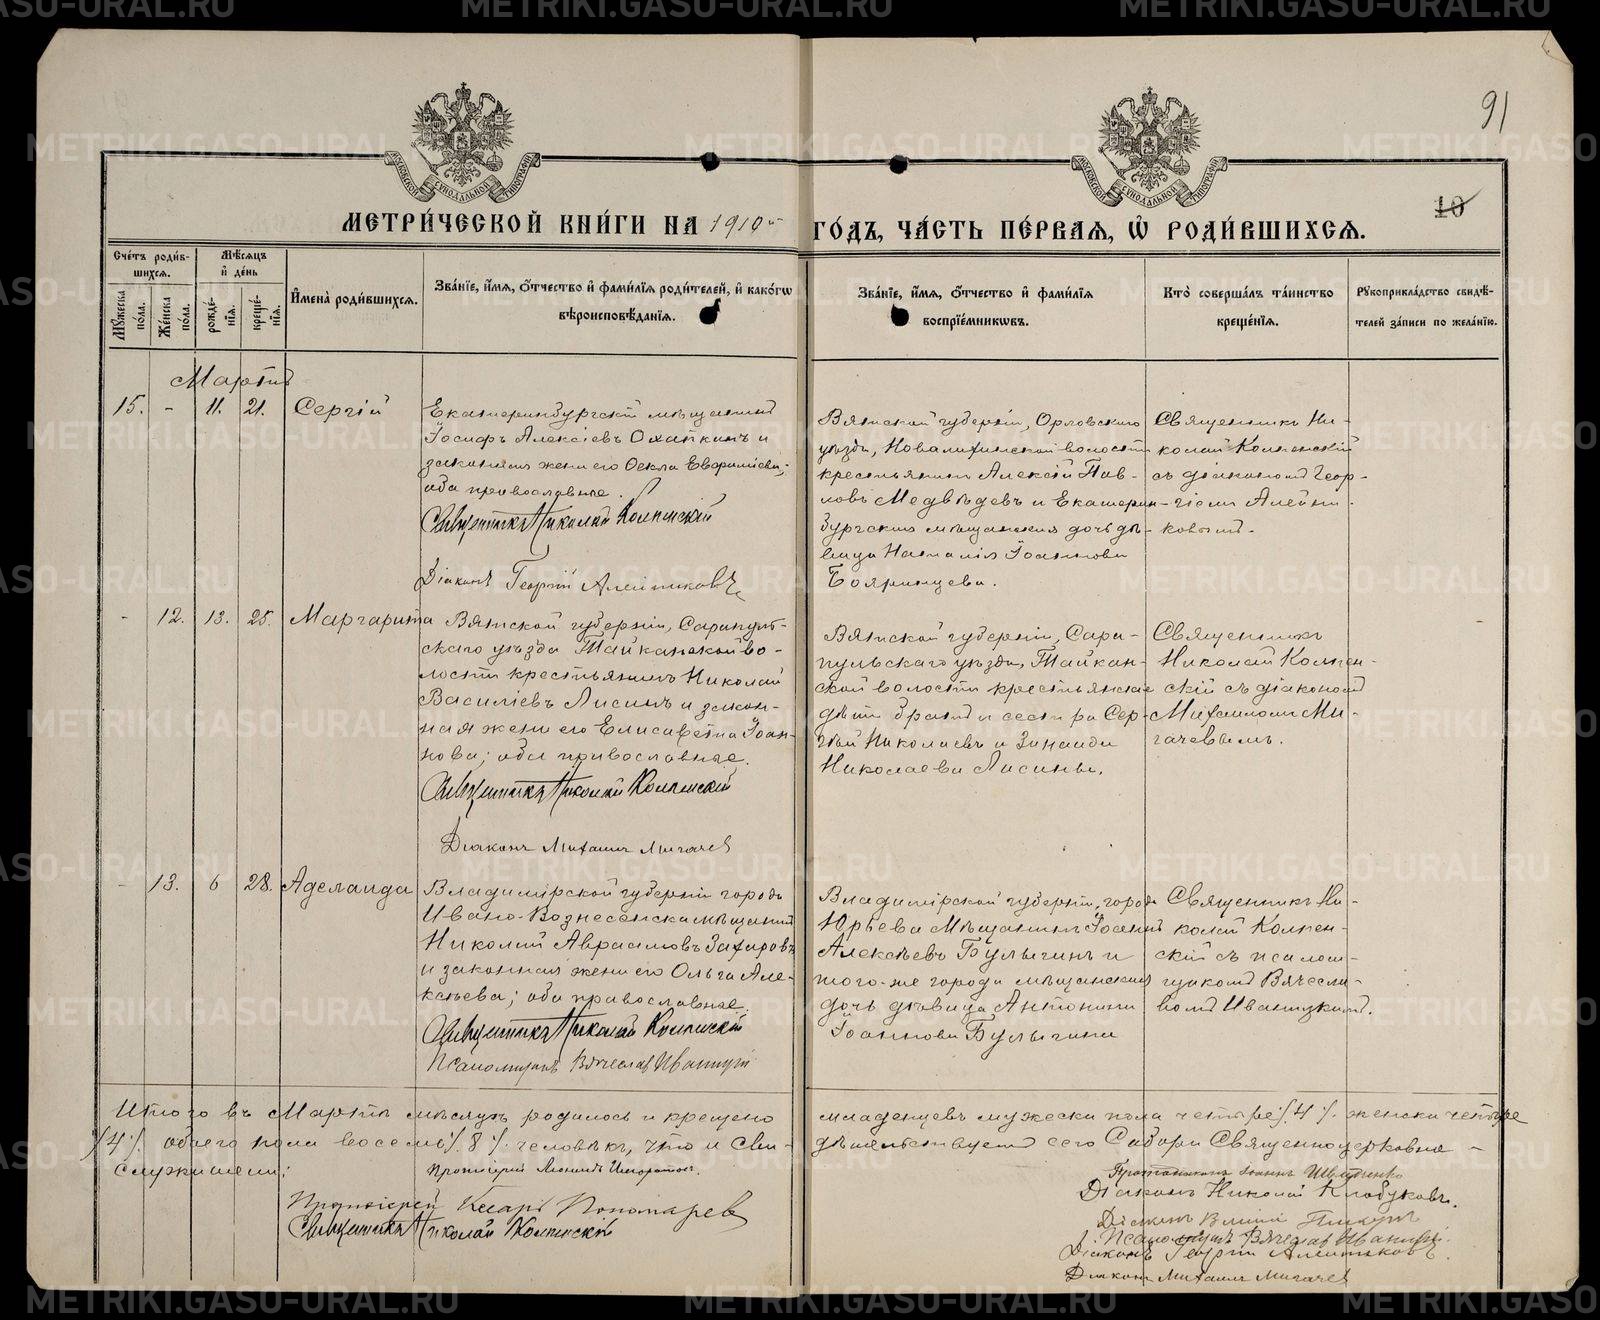 METRIKI.GASO-URAL.RU
91
МОСКОВСКОЙ СѴНОДАЛЬНОЙ ТИПОГРАФІИ
МОСКОВСКОЙ СѴНОДАЛЬНОЙ ТИПОГРАФІИ
10
МЕТРИ́ЧЕСКОЙ КНИ́ГИ НА 1910й ГО́ДЪ, ЧА́СТЬ ПЕ́РВАЯ, Ѡ҆ РОДИ́ВШИХСЯ.
Сче́тъ роди́в-
шихся.
Мѣ́сяцъ
и҆ де́нь
Мꙋ́жеска по́ла.
Же́нска по́ла.
рожде́-
нїя.
креще́-
нїя.
И҆мена̀ роди́вшихся.
Зва́нїе, и҆́мя, ѻ҆́тчество и҆ фами́лїя роди́телей, и҆ како́гѡ
вѣроисповѣ́данїя.
Зва́нїе, и҆́мя, ѻ҆́тчество и҆ фами́лїя
воспрїе́мникѡвъ.
Кто̀ соверша́лъ та́инство
креще́нїя.
Рꙋкоприкла́дство свидѣ́-
телей за́писи по жела́нїю.
Мартъ
15. - 11. 21. Сергій
Екатеринбургскій мѣщанинъ
Іосифъ Алексіевъ Охапкинъ и
законная жена его Ѳекла
оба православные.
Священникъ Николай Колпенскій
Діаконъ Георгій Алейниковъ
Вятской губерніи, Орловскаго
уѣзда, волости
крестьянинъ Алексій Пав-
ловъ Медвѣдевъ и Екатерин-
бургская мѣщанская дочь дѣ-
вица Наталія Іоаннова
Бояринцева.
Священникъ Ни-
колай Колпенскій
съ діакономъ Геор-
гіемъ Алейни-
ковымъ.
- 12. 13. 25. Маргарита
Вятской губерніи, Сарапуль-
скаго уѣзда Тайканской во-
лости крестьянинъ Николай
Василіевъ Лисинъ и закон-
ная жена его Елисавета Іоан-
нова; оба православные.
Священникъ Николай Колпенскій
Діаконъ Михаилъ Мигачев
Вятской губерніи, Сара-
пульскаго уѣзда, Тайкан-
ской волости крестьянскіе
дѣти братъ и сестра Сер-
гѣй Николаевъ и Зинаида
Николаева Лисины.
Священникъ
Николай Колпен-
скій съ діакономъ
Михаиломъ Ми-
гачевымъ.
- 13. 6 28. Аделаида
Владимірской губерніи города
Ивано-Вознесенска мѣщанинъ
Николай Авраамовъ Захаровъ
и законная жена его Ольга Але-
ксѣева; оба православные.
Священникъ Николай Колпенскій
Псаломщикъ Вячеслав Иваницкій
Владимірской губерніи, города
Юрьева Мѣщанинъ Іоаннъ
Алексѣевъ Булыгинъ и
того-же города мѣщанская
дочь дѣвица Антонина
Іоаннова Булыгина
Священникъ Ни-
колай Колпен-
скій съ псалом-
щикомъ Вячесла-
вомъ Иваницкимъ.
Итого въ Мартѣ мѣсяцѣ родилось и крещено младенцевъ мужеска пола четыре /4/. женска четыре
/4/. обоего пола восемь /.8/. человѣкъ, что и сви- дѣтельствуетъ сего Собора Священноцерковно-
служители:
Протоіерей Кесарь Пономарев
Священникъ Николай Колпенскій
Протодіаконъ Іоаннъ
Діаконъ Николай Клабуковъ.
Псаломщикъ Вячеслав Иваницкій
Діаконъ Георгій Алейниковъ.
Діаконъ Михаилъ Мигачев